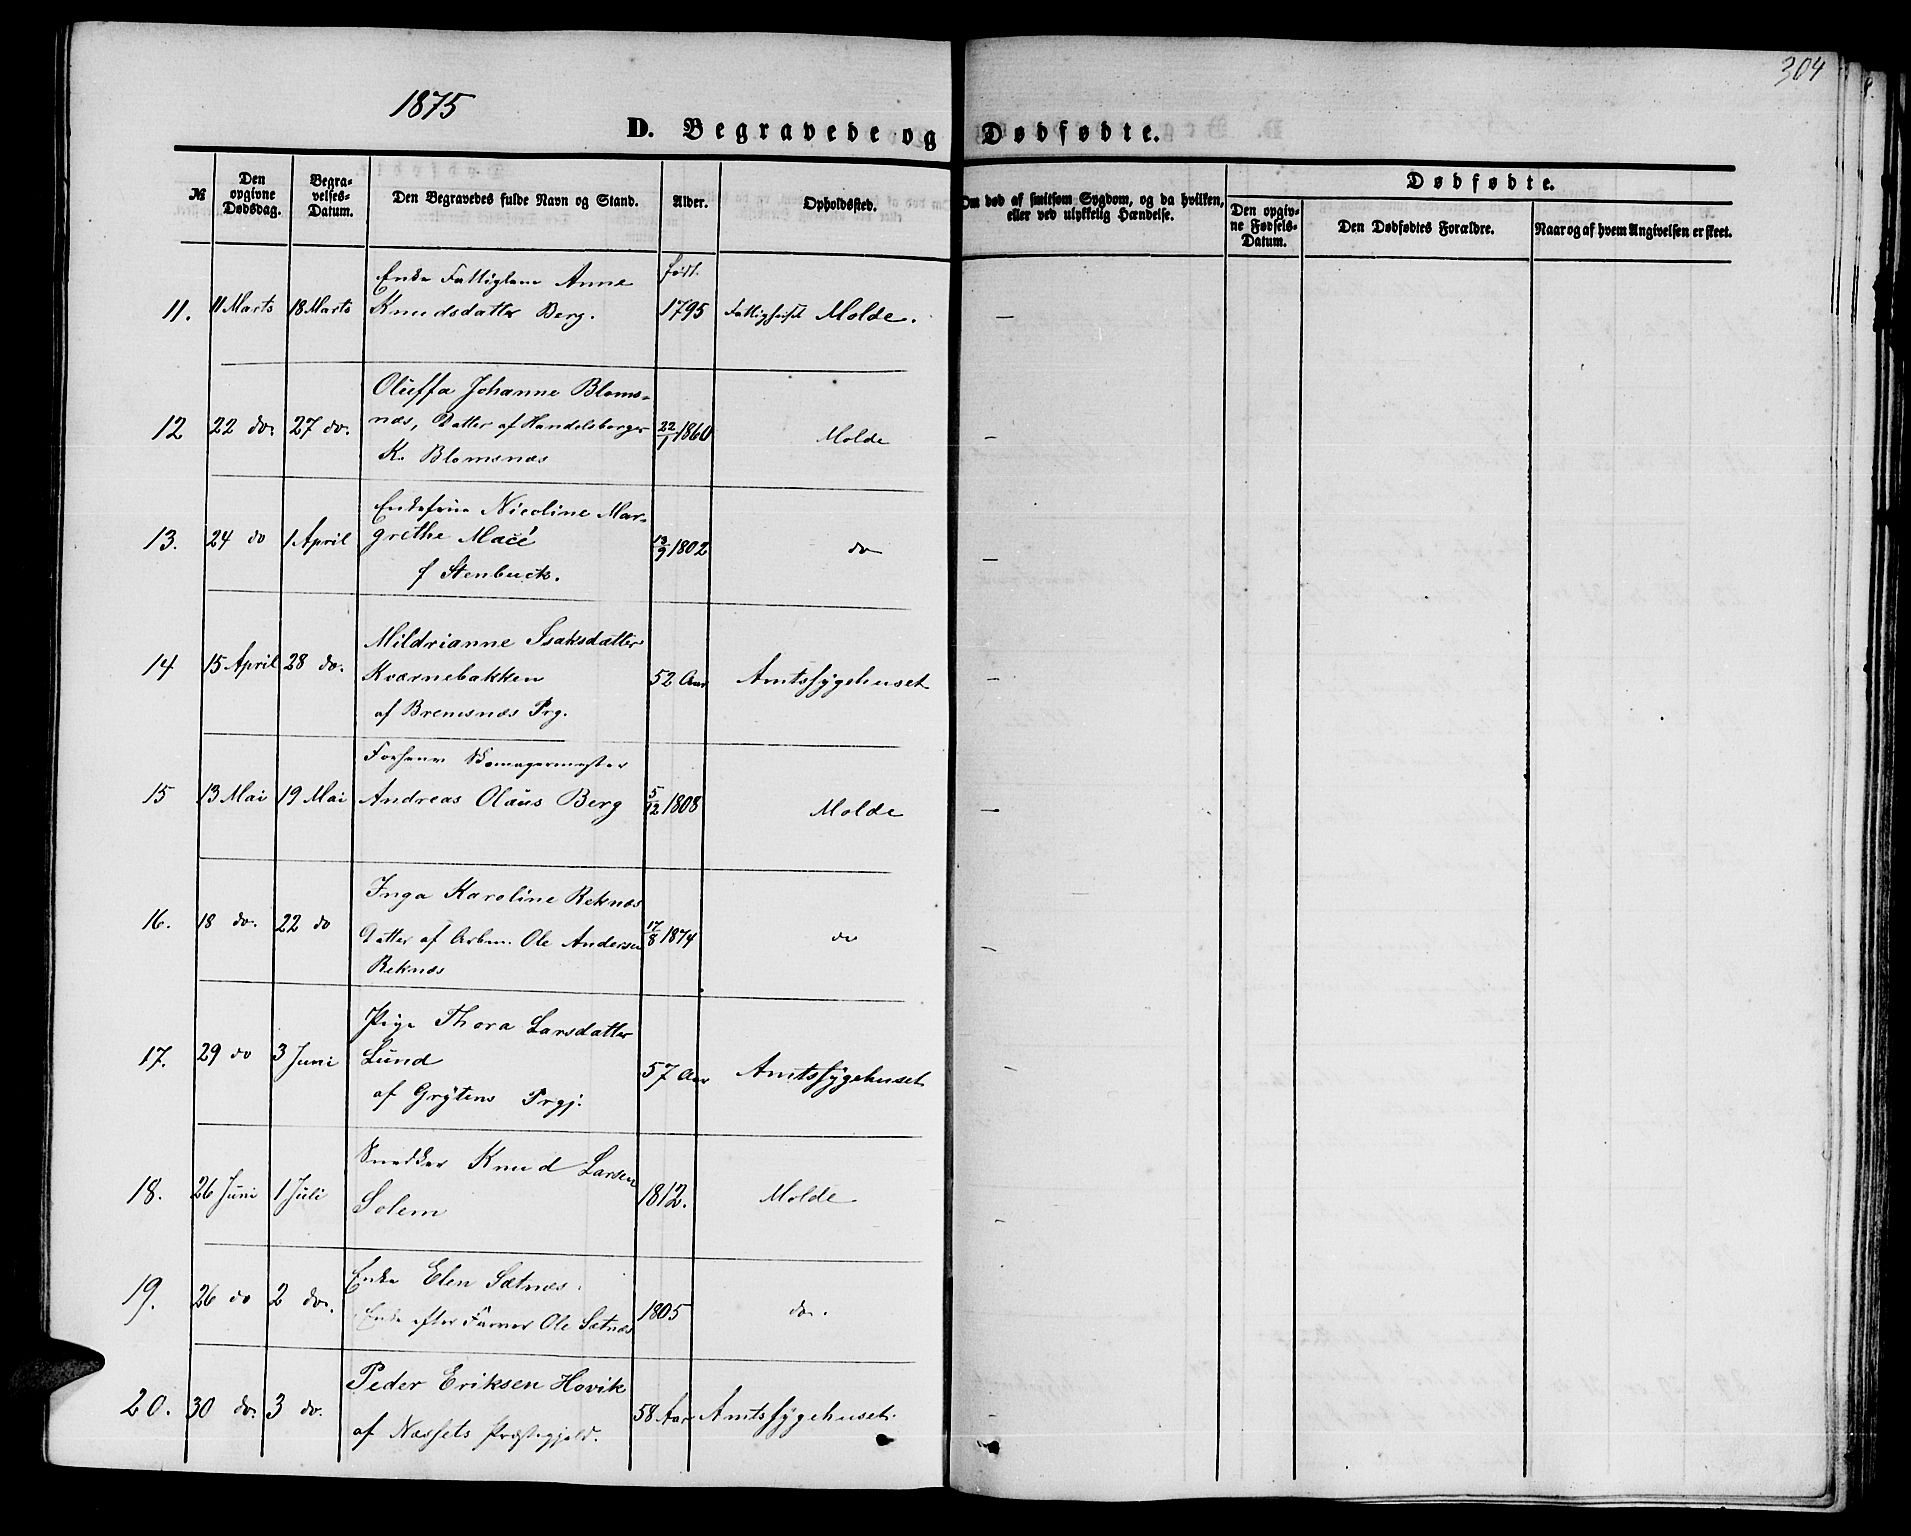 304
1875
D. Begravede og Dødfødte.
№
Den opgivne Dødsdag.
Begravelses-Datum.
Den Begravedes fulde Navn og Stand.
Alder.
Opholdssted.
Om død af smitsom Sygdom, og da hvilken, eller ved ulykkelig Hændelse.
Dødfødte.
Den opgivne Fødsels-Datum.
Den Dødfødtes Forældre.
Naar og af hvem Angivelsen er skeet.
Enke Fattiglem Anne født
11. 11 Marts 18 Marts Knudsdatter Berg. 1795 Fattighuset Molde. —
Oluffa Johanne Bloms-
12 22 do. 27 do. næs, Datter af Handelsborger 22/1 1860 Molde —
K. Blomsnæs
Enkefrue Nicoline Mar-
13. 24 do 1 April grethe Macé 13/9 1802 do —
f Stenbuck.
Mildrianne Isaksdatter
14 15 April 28 do. Kværnebakken 52 Aar Amtssygehuset —
af Bremsnæs Prg.
Forhenv Skomagermester
15 13 Mai 19 Mai Andreas Olaus Berg 5/12 1808 Molde —
Inga Karoline Reknæs
16. 18 do. 22 do Datter af Arbm. Ole Andersen 17/8 1874 do —
Reknæs
Pige Thora Larsdatter
17. 29 do 3 Juni Lund 57 Aar Amtssygehuset
af Grytens Prgj.
Snedker Knud Larsen
18. 26 Juni 1 Juli Solem 1812. Molde —
Enke Elen Sætnæs.
19. 26 do 2 do. Enke efter Farver Ole Sætnæs 1805 do.
Peder Eriksen Hovik
20. 30 do. 3 do. af Næssets Præstegjeld. 58 Aar Amtssygehuset. —